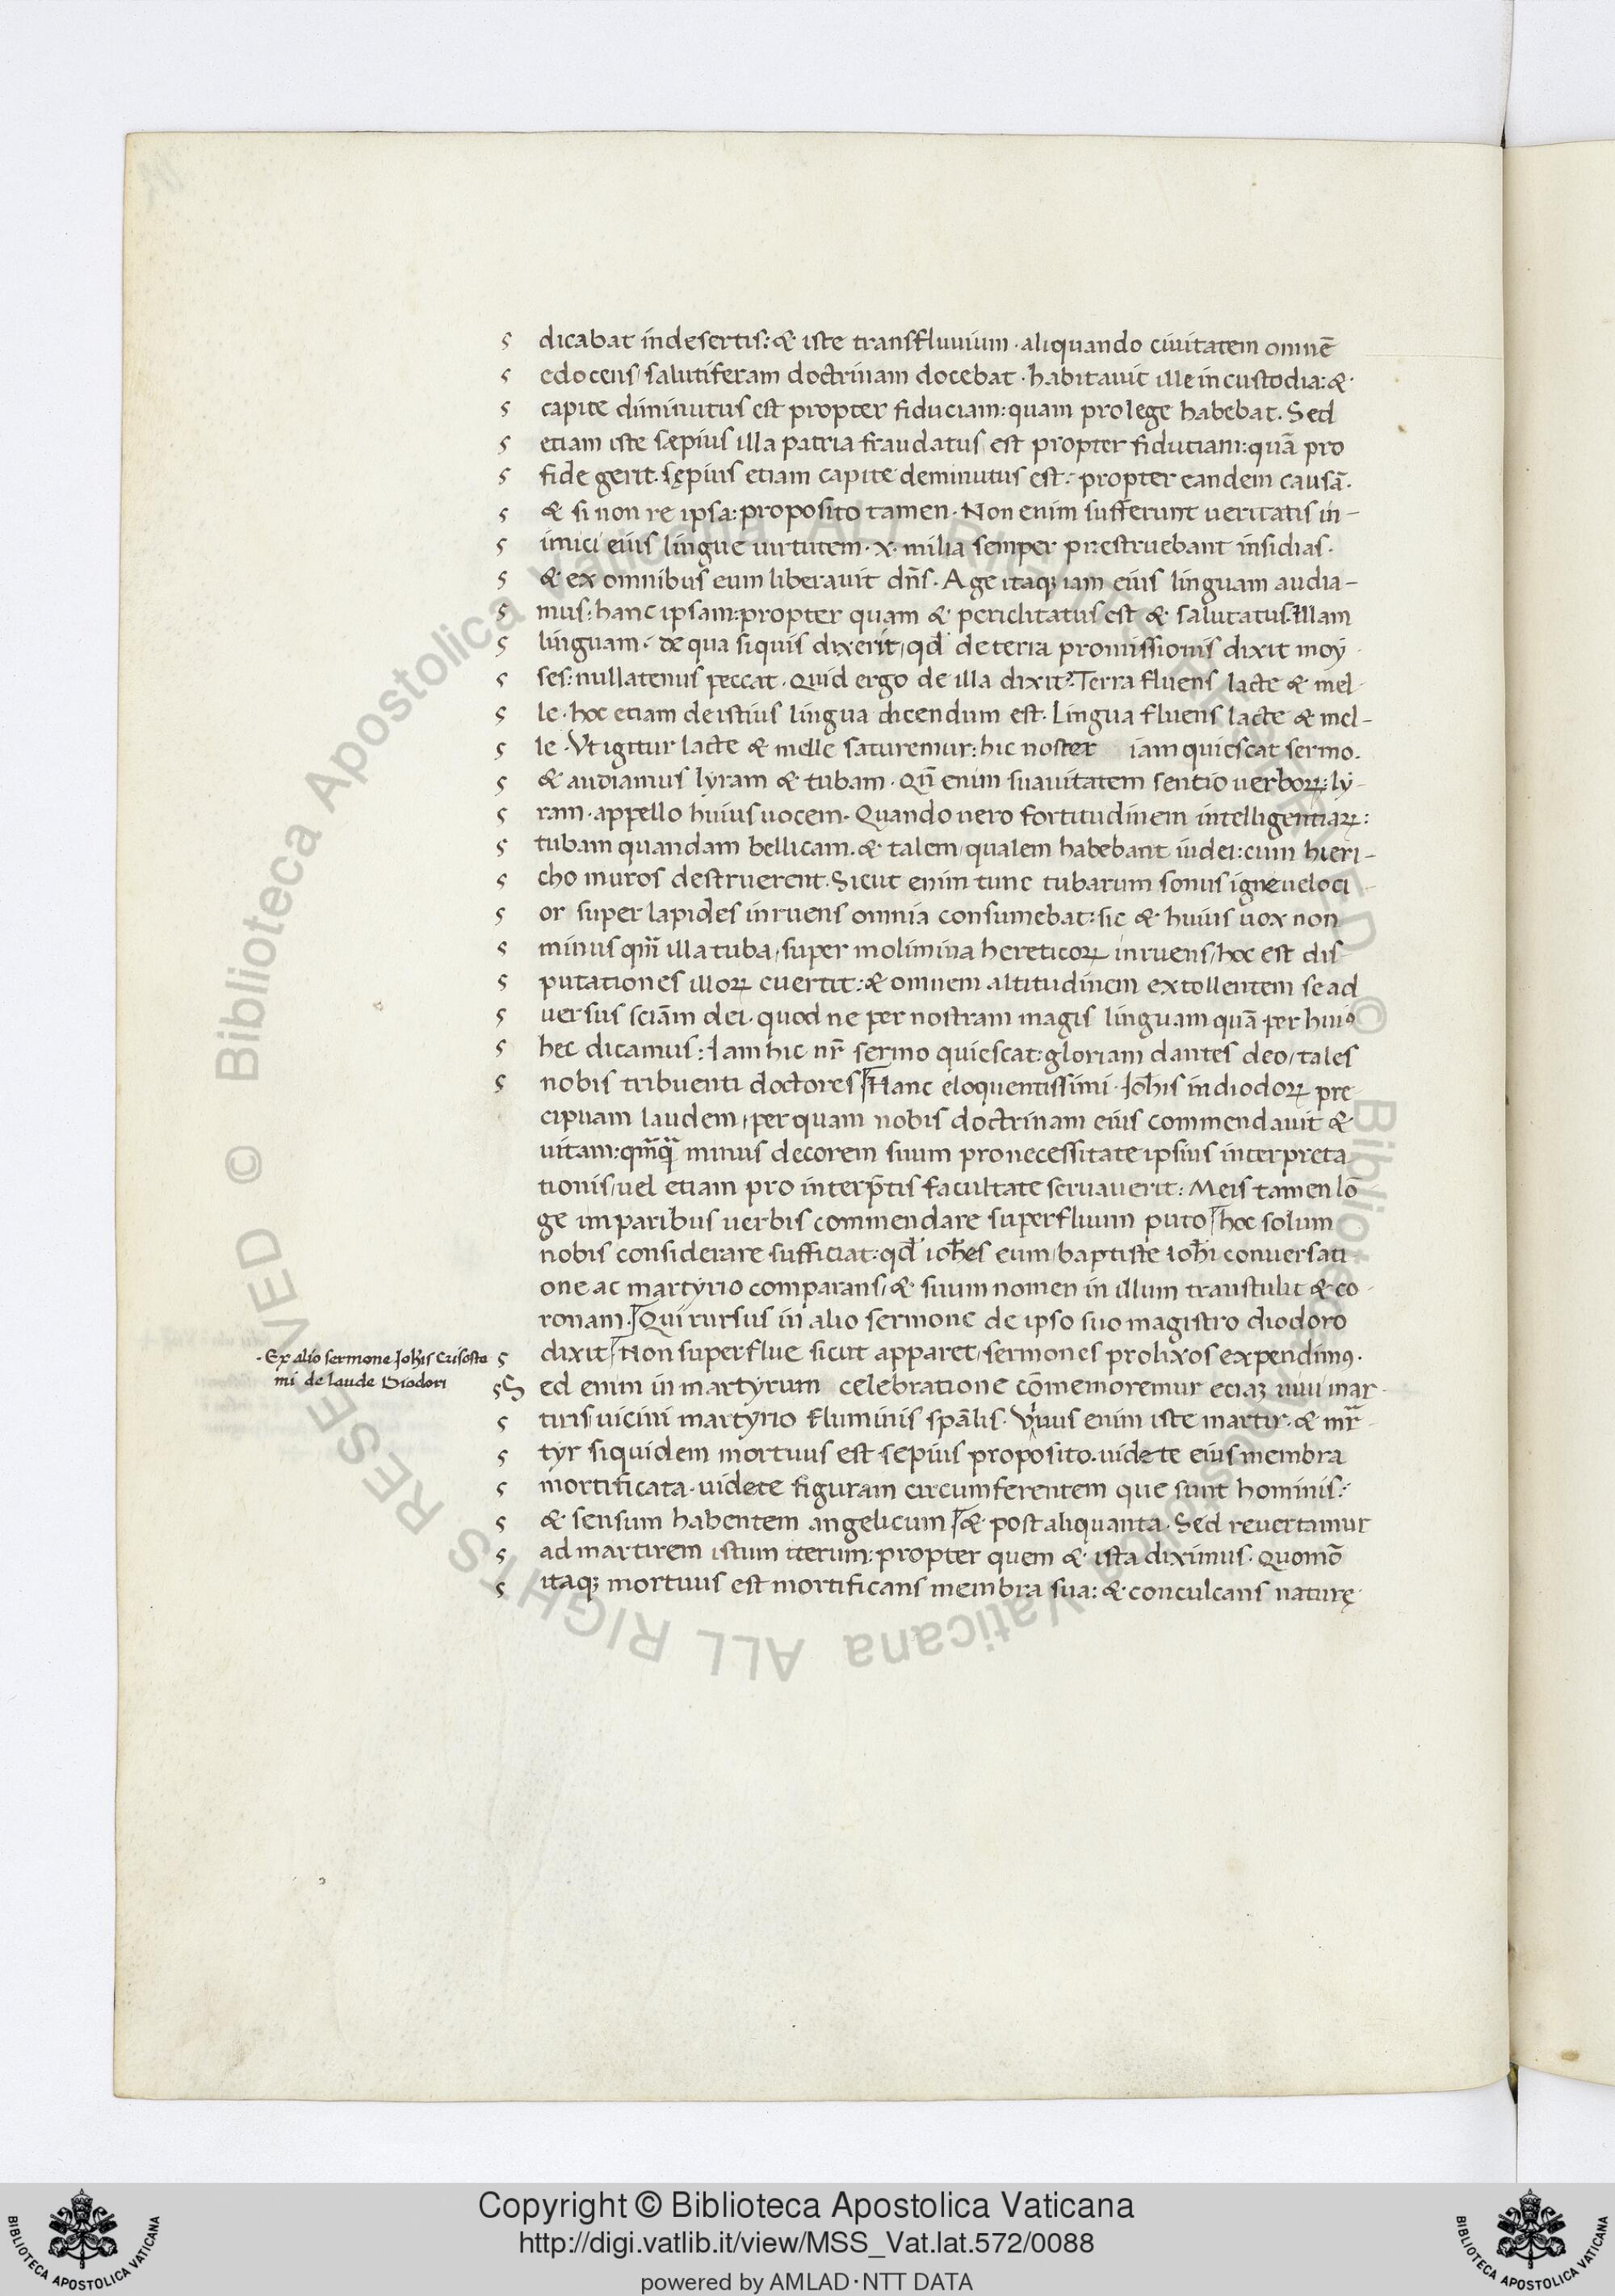 dicabat in desertis: & iste transfluuium · aliquando ciuitatem omnē
edocens / salutiferam doctrinam docebat · habitauit ille in custodia: &
capite diminutus est propter fiduciam: quam pro lege habebat. Sed
etiam iste sæpius illa patria fraudatus est propter fiduciam: quā pro
fide gerit. sępius etiam capite deminutus est: propter eandem causā.
& si non re ipsa: proposito tamen. Non enim sufferunt ueritatis in-
imici eius lingue uirtutem · x · milia semper prestruebant insidias.
& ex omnibus eum liberauit dn̄s. Age itaqꝫ iam eius linguam audia-
mus: hanc ipsam: propter quam & periclitatus est & saluatus. Illam
linguam: de qua siquis dixerit, qd̛ de terra promissionis dixit moy
ses: nullatenus peccat. Quid ergo de illa dixit? Terra fluens lacte & mel-
le. hoc etiam de istius lingua dicendum est. Lingua fluens lacte & mel-
le. Vt igitur lacte & melle saturemur: hic noster iam quiescat sermo.
& audiamus lyram & tubam. Qn̄ enim suauitatem sentio uerboꝝ: ly-
ram · appello huius uocem. Quando uero fortitudinem intelligentiaꝝ:
tubam quandam bellicam. & talem, qualem habebant iudei: cum hieri-
cho muros destruerent. Sicut enim tunc tubarum sonus igne ueloci
or super lapides inruens omnia consumebat: sic & huius uox non
minus qm̄ illa tuba, super molimina hereticoꝝ inruens, hoc est dis
putationes illoꝝ euertit: & omnem altitudinem extollentem se ad
uersus sciām dei. quod ne per nostram magis linguam quā per huiꝰ
hec dicamus: Iam hic nr̄ sermo quiescat: gloriam dantes deo, tales
nobis tribuenti doctores Hanc eloquentissimi · Joh̄is in diodoꝝ pre
cipuam laudem, per quam nobis doctrinam eius commendauit &
uitam: qm̄q̄ minus decorem suum pro necessitate ipsius interpreta
tionis, uel etiam pro interp̄tis facultate seruauerit: Meis tamen lō
ge imparibus uerbis commendare superfluum puto hoc solum
nobis considerare sufficiat: qd̛ ioh̄es eum, baptiste ioh̄i conuersati
one ac martyrio comparans, & suum nomen in illum transtulit & co
ronam. Qui rursus in alio sermone de ipso suo magistro diodoro
dixit Non superflue sicut apparet, sermones prolixos expendimꝰ.
Ex alio sermone Joh̄is Crisosto
mi de laude Diodori
Sed enim in martyrum celebratione cōmemoremur etiaꝫ uiui mar
tiris, uicini martyrio fluminis spālis. Viuus enim iste martir. & mr̄
tyr siquidem mortuus est sepius proposito. uidete eius membra
mortificata. uidete figuram circumferentem que sunt hominis:
& sensum habentem angelicum & post aliquanta. Sed reuertamur
ad martirem istum iterum: propter quem & ista diximus. Quomō
itaqꝫ mortuus est mortificans membra sua: & conculcans naturę
Copyright © Biblioteca Apostolica Vaticana
http://digi.vatlib.it/view/MSS_Vat.lat.572/0088
powered by AMLAD · NTT DATA
© Biblioteca Apostolica Vaticana ALL RIGHTS RESERVED
© Biblioteca Apostolica Vaticana ALL RIGHTS RESERVED
BIBLIOTECA APOSTOLICA VATICANA
BIBLIOTECA APOSTOLICA VATICANA